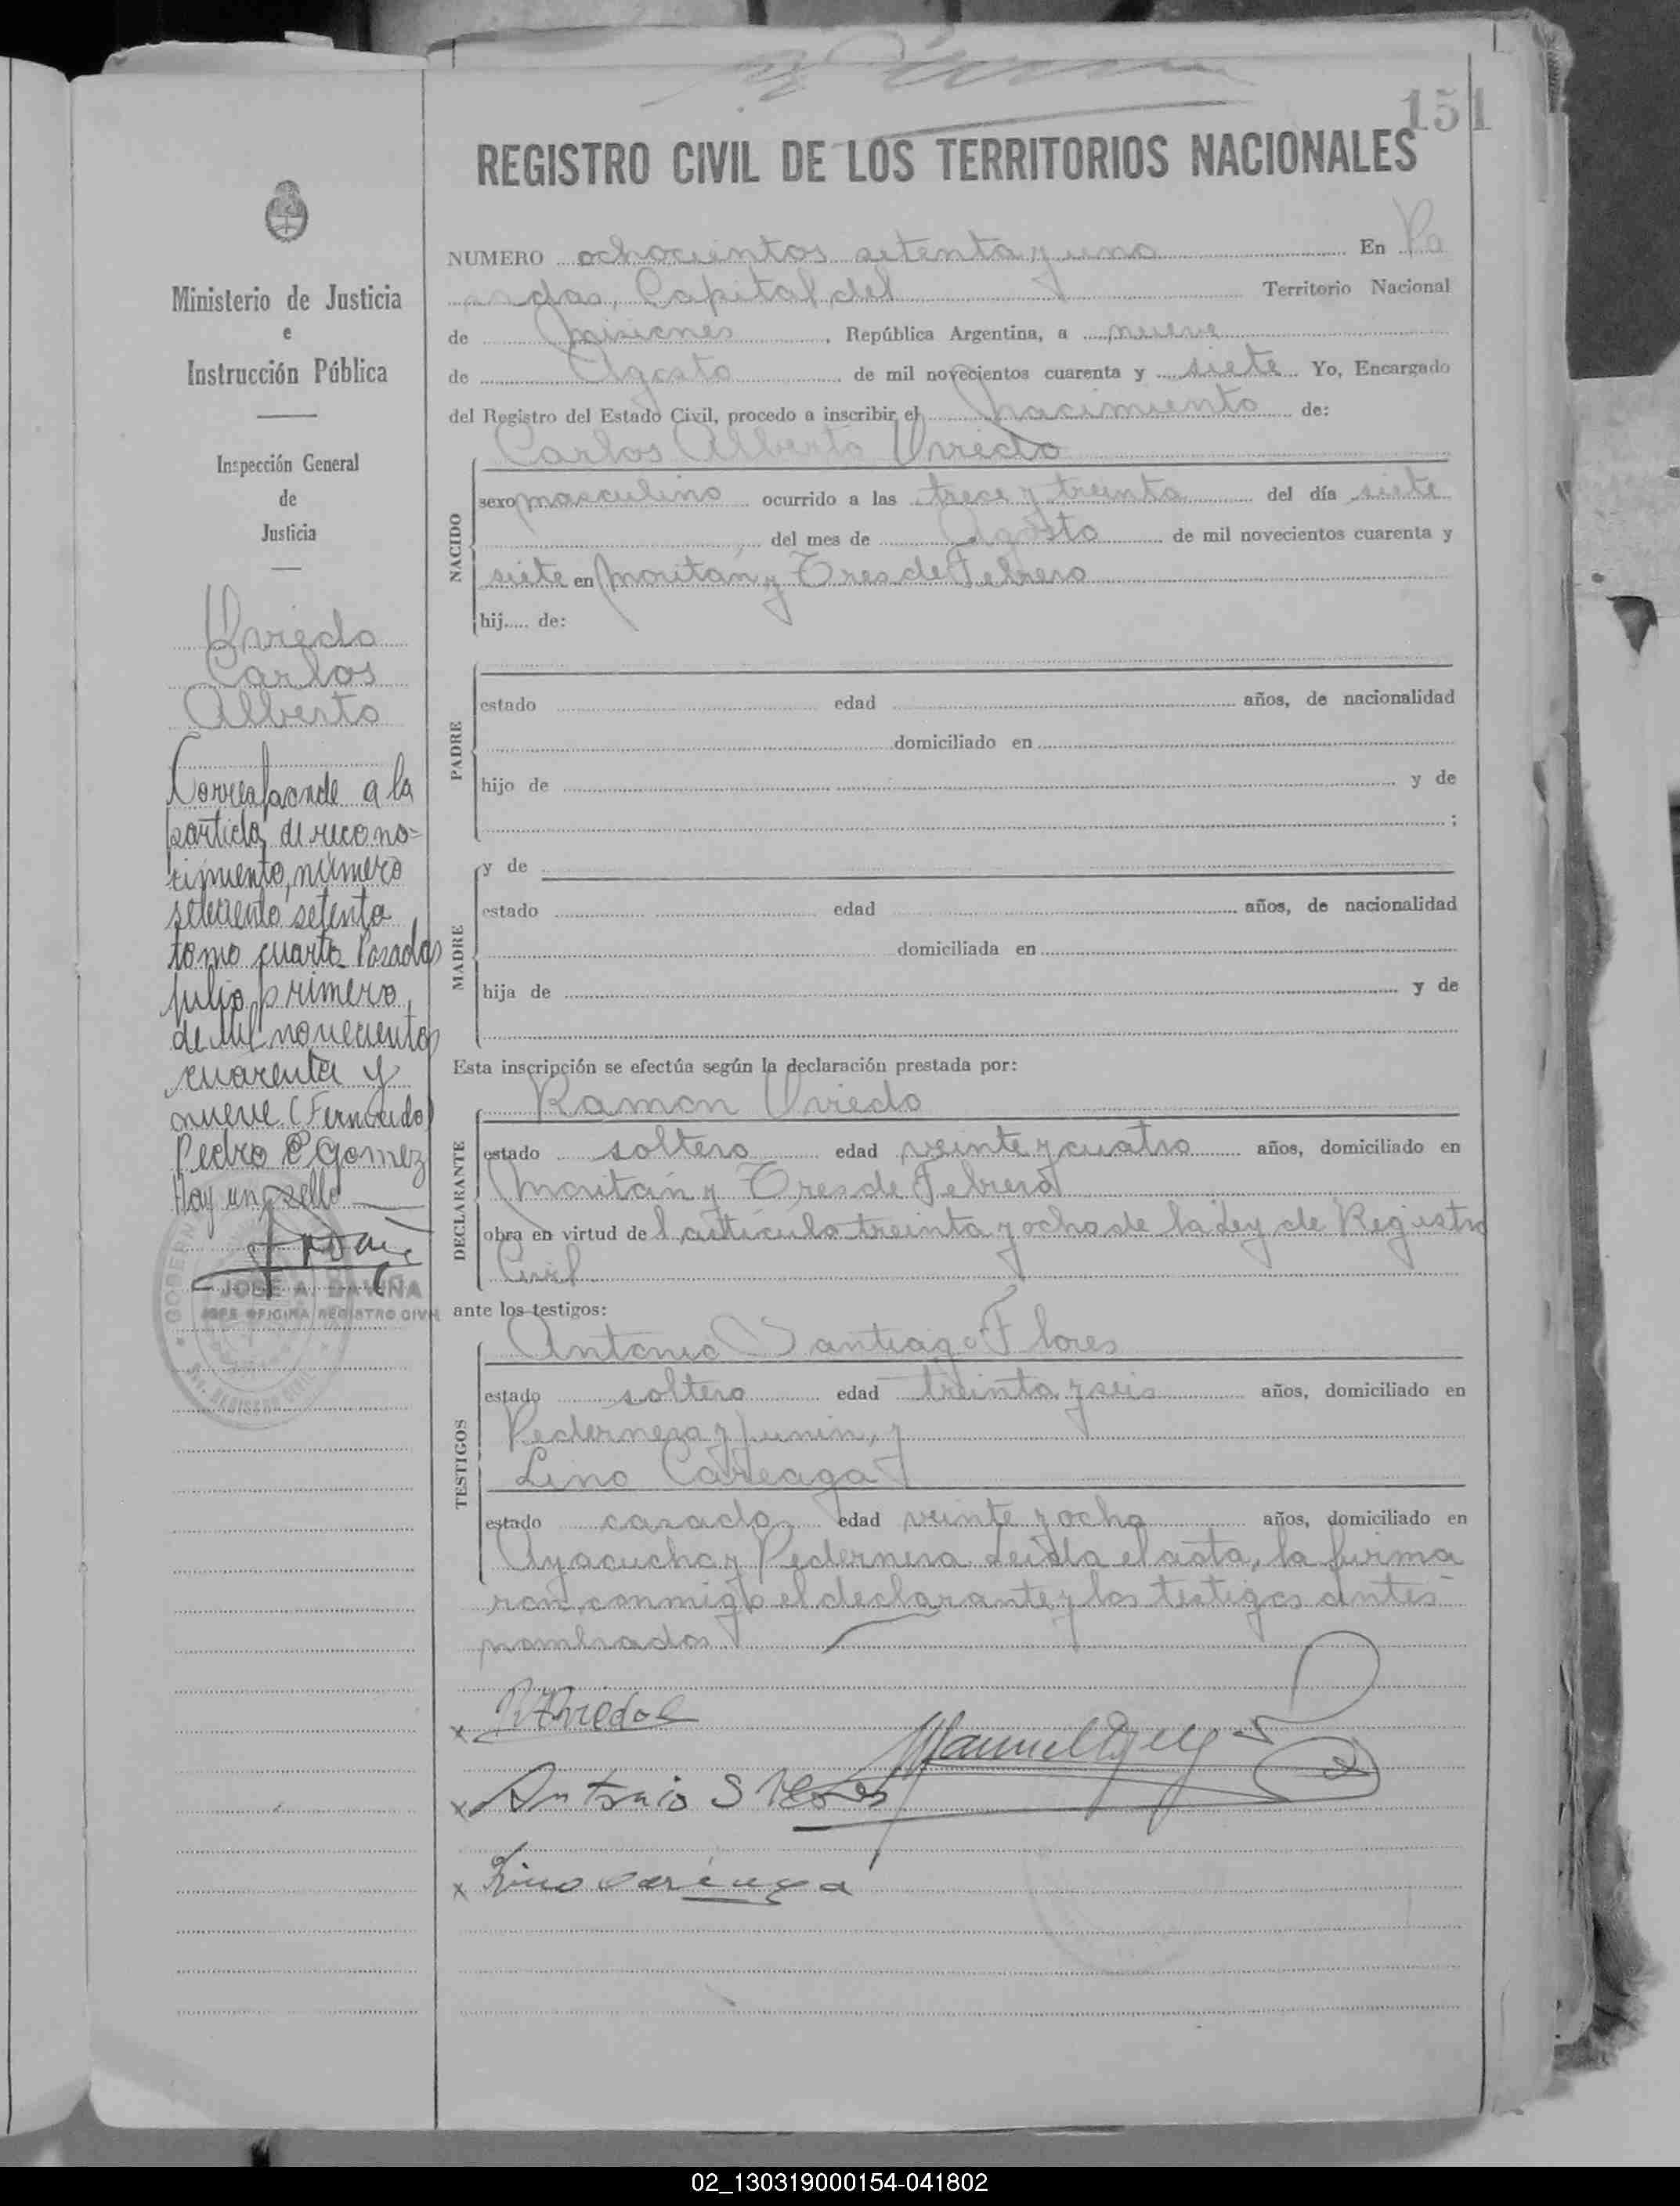 151
REGISTRO CIVIL DE LOS TERRITORIOS NACIONALES
Ministerio de Justicia
e
Instrucción Pública
Inspección General
de
Justicia
Oviedo
Carlos
Alberto
Corresponde a la
partida de recono=
cimiento, número
seteciento setenta
tomo cuarto Posadas
julio primero
de mil novecientos
cuarenta y
nueve (Fernando)
Pedro E Gomez
Hay un sello
JOSE A. DAVIÑA
JEFE OFICINA REGISTRO CIVIL
NUMERO ochocientos setenta y uno En Po
sadas, Capital del Territorio Nacional
de Misiones, República Argentina, a nueve
de Agosto de mil novecientos cuarenta y siete Yo, Encargado
del Registro del Estado Civil, procedo a inscribir el nacimiento de:
Carlos Alberto Oviedo
NACIDO
sexo masculino ocurrido a las trece y treinta del día siete
del mes de Agosto de mil novecientos cuarenta y
siete en Moritán y Tres de Febrero
hij..... de:
PADRE
estado edad años, de nacionalidad
domiciliado en
hijo de y de
;
MADRE
y de
estado edad años, de nacionalidad
domiciliada en
hija de y de
Esta inscripción se efectúa según la declaración prestada por:
DECLARANTE
Ramon Oviedo
estado soltero edad veinte y cuatro años, domiciliado en
Moritán y Tres de Febrero
obra en virtud de l artículo treinta y ocho de la Ley de Registro
Civil
ante los testigos:
TESTIGOS
Antonio Santiago Flores
estado soltero edad treinta y seis años, domiciliado en
Pedernera y Junin, y
Lino Careaga
estado casado edad veinte y ocho años, domiciliado en
Ayacucho y Pedernera Leida el acta, la firma
ron conmigo el declarante y los testigos antes
nombrados
x R Oviedo
x Antonio S Flores
x Lino Careaga
02_130319000154-041802